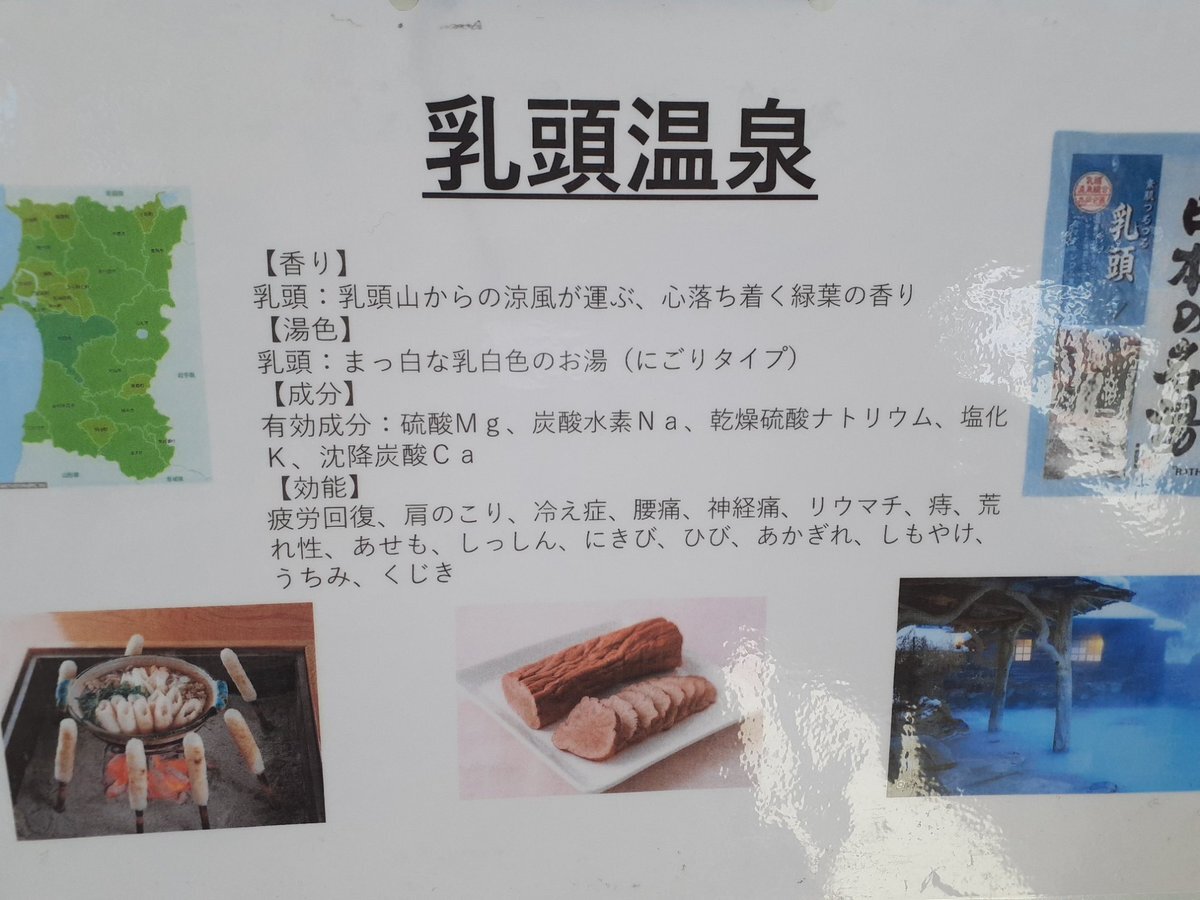 乳頭温泉
【香り】
乳頭：乳頭山からの涼風が運ぶ、心落ち着く緑葉の香り
【湯色】
乳頭：まっ白な乳白色のお湯（にごりタイプ）
【成分】
有効成分：硫酸Ｍｇ、炭酸水素Ｎａ、乾燥硫酸ナトリウム、塩化
Ｋ、沈降炭酸Ｃａ
【効能】
疲労回復、肩のこり、冷え症、腰痛、神経痛、リウマチ、痔、荒
れ性、あせも、しっしん、にきび、ひび、あかぎれ、しもやけ、
うちみ、くじき
乳頭
日本の名湯